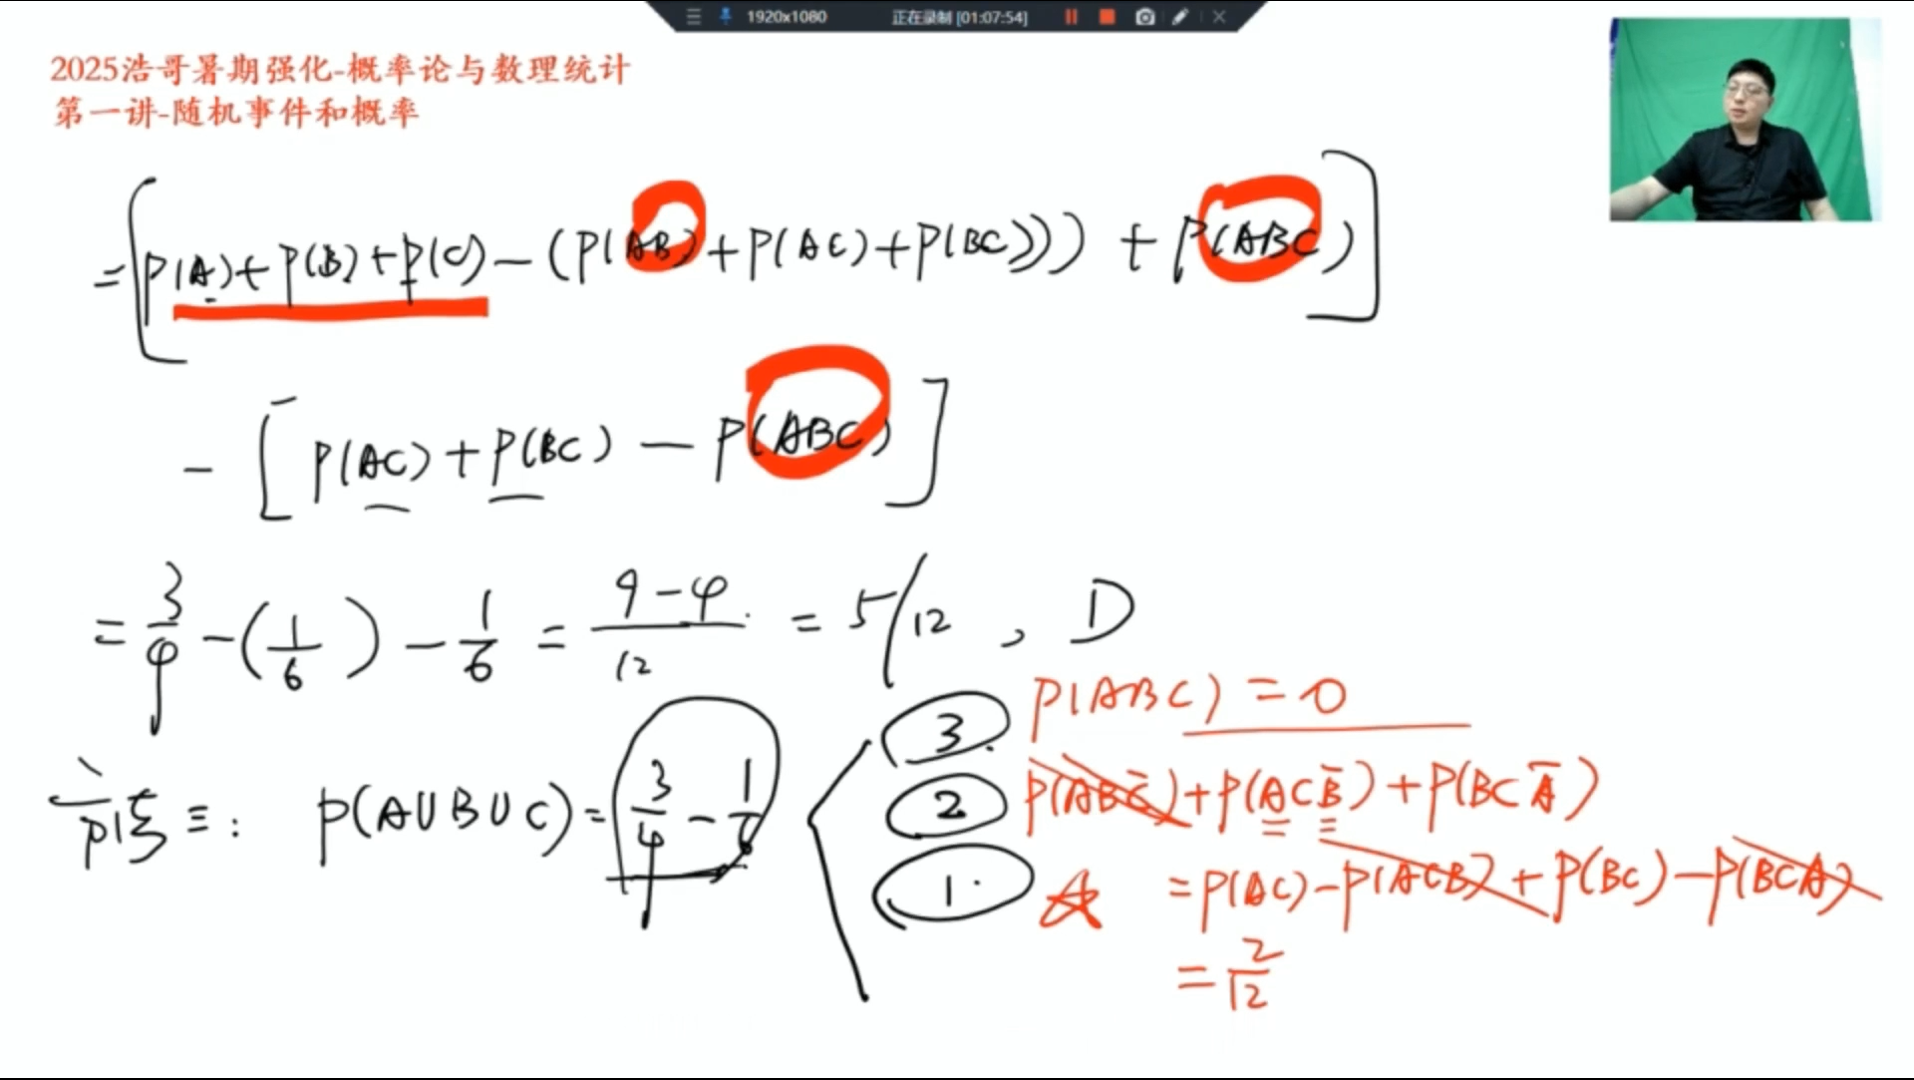 1920x1080 正在录制 [01:07:54]
2025浩哥暑期强化-概率论与数理统计
第一讲-随机事件和概率
=[P(A)+P(B)+P(C)-(P(AB)+P(AC)+P(BC)))+P(ABC)]
-[P(AC)+P(BC)-P(ABC)]
=3/4-(1/6)-1/6=(9-4)/12=5/12, D
三: P(A∪B∪C)=3/4-1/6
③ P(ABC)=0
② P(ABC̄)+P(ACB̄)+P(BCĀ)
① ☆ =P(AC)-P(ACB)+P(BC)-P(BCA)
=2/12